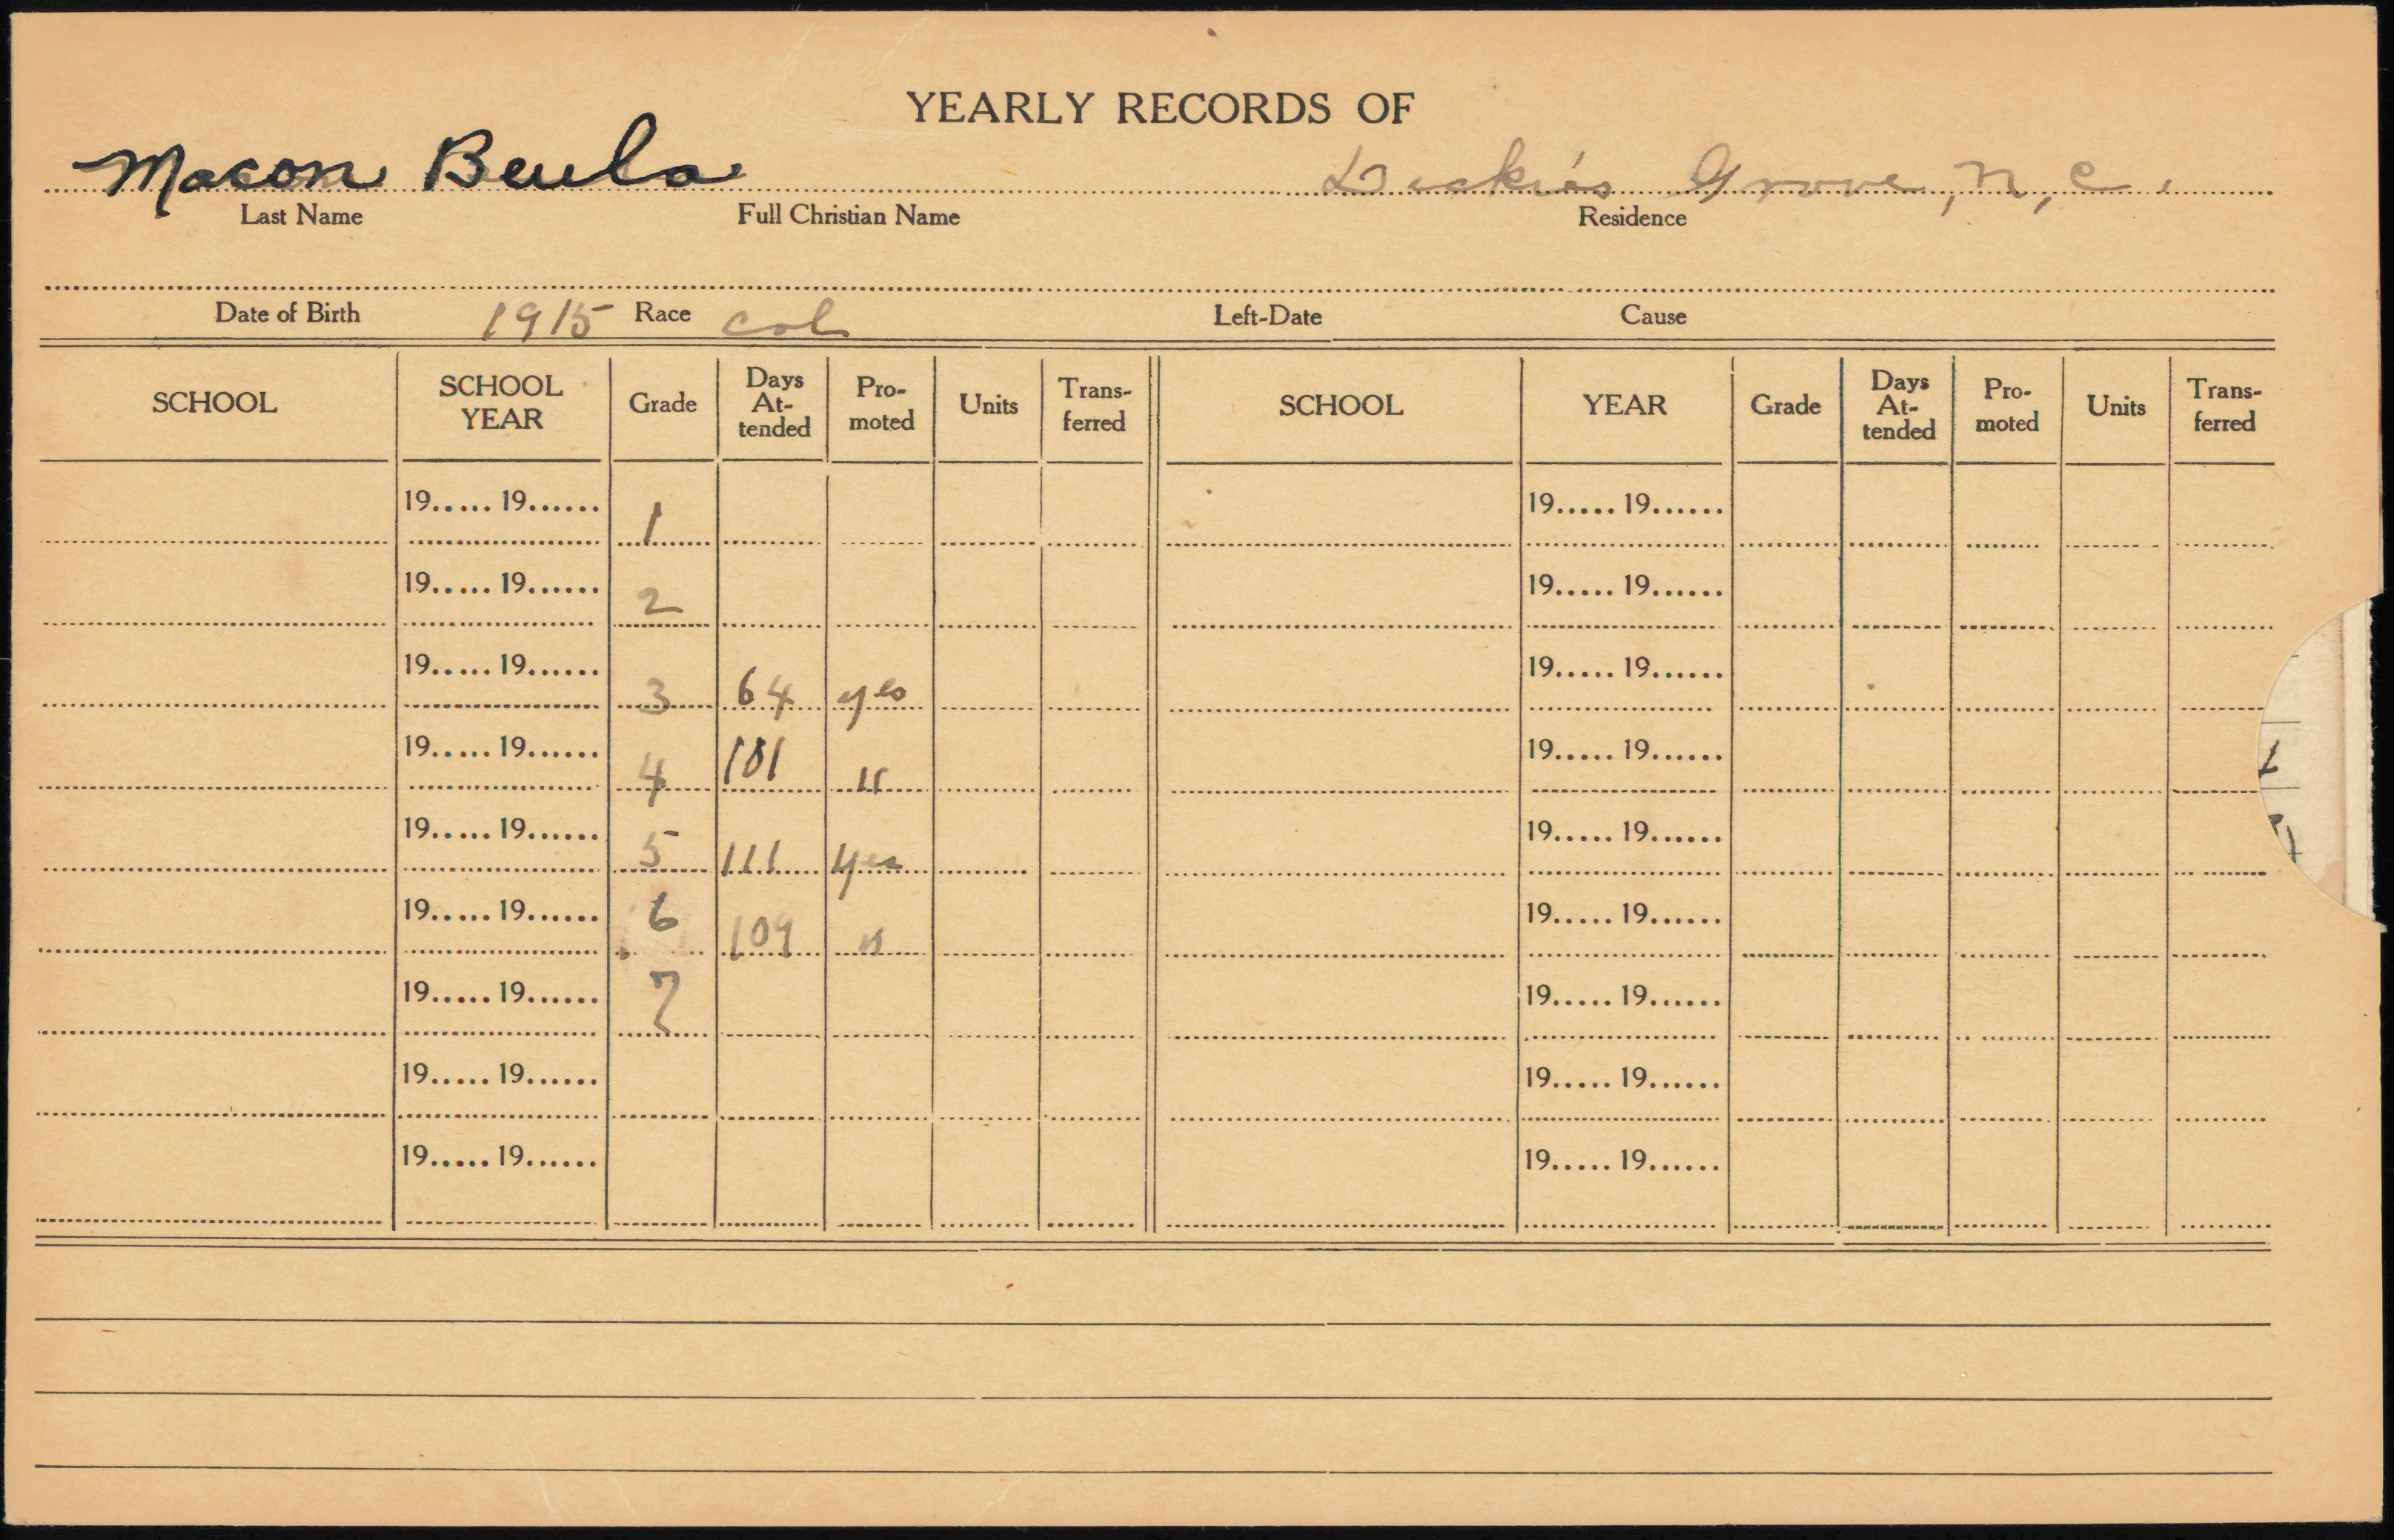 YEARLY RECORDS OF
Macon Beula Dickie's Grove, N, C.
Last Name Full Christian Name Residence
Date of Birth 1915 Race col Left-Date Cause
SCHOOL SCHOOL YEAR Grade Days At-tended Pro-moted Units Trans-ferred SCHOOL YEAR Grade Days At-tended Pro-moted Units Trans-ferred
19..... 19...... 1 19..... 19......
19..... 19...... 2 19..... 19......
19..... 19...... 3 64 yes 19..... 19......
19..... 19...... 4 101 " 19..... 19......
19..... 19...... 5 111 yes 19..... 19......
19..... 19...... 6 109 " 19..... 19......
19..... 19...... 7 19..... 19......
19..... 19...... 19..... 19......
19..... 19...... 19..... 19......